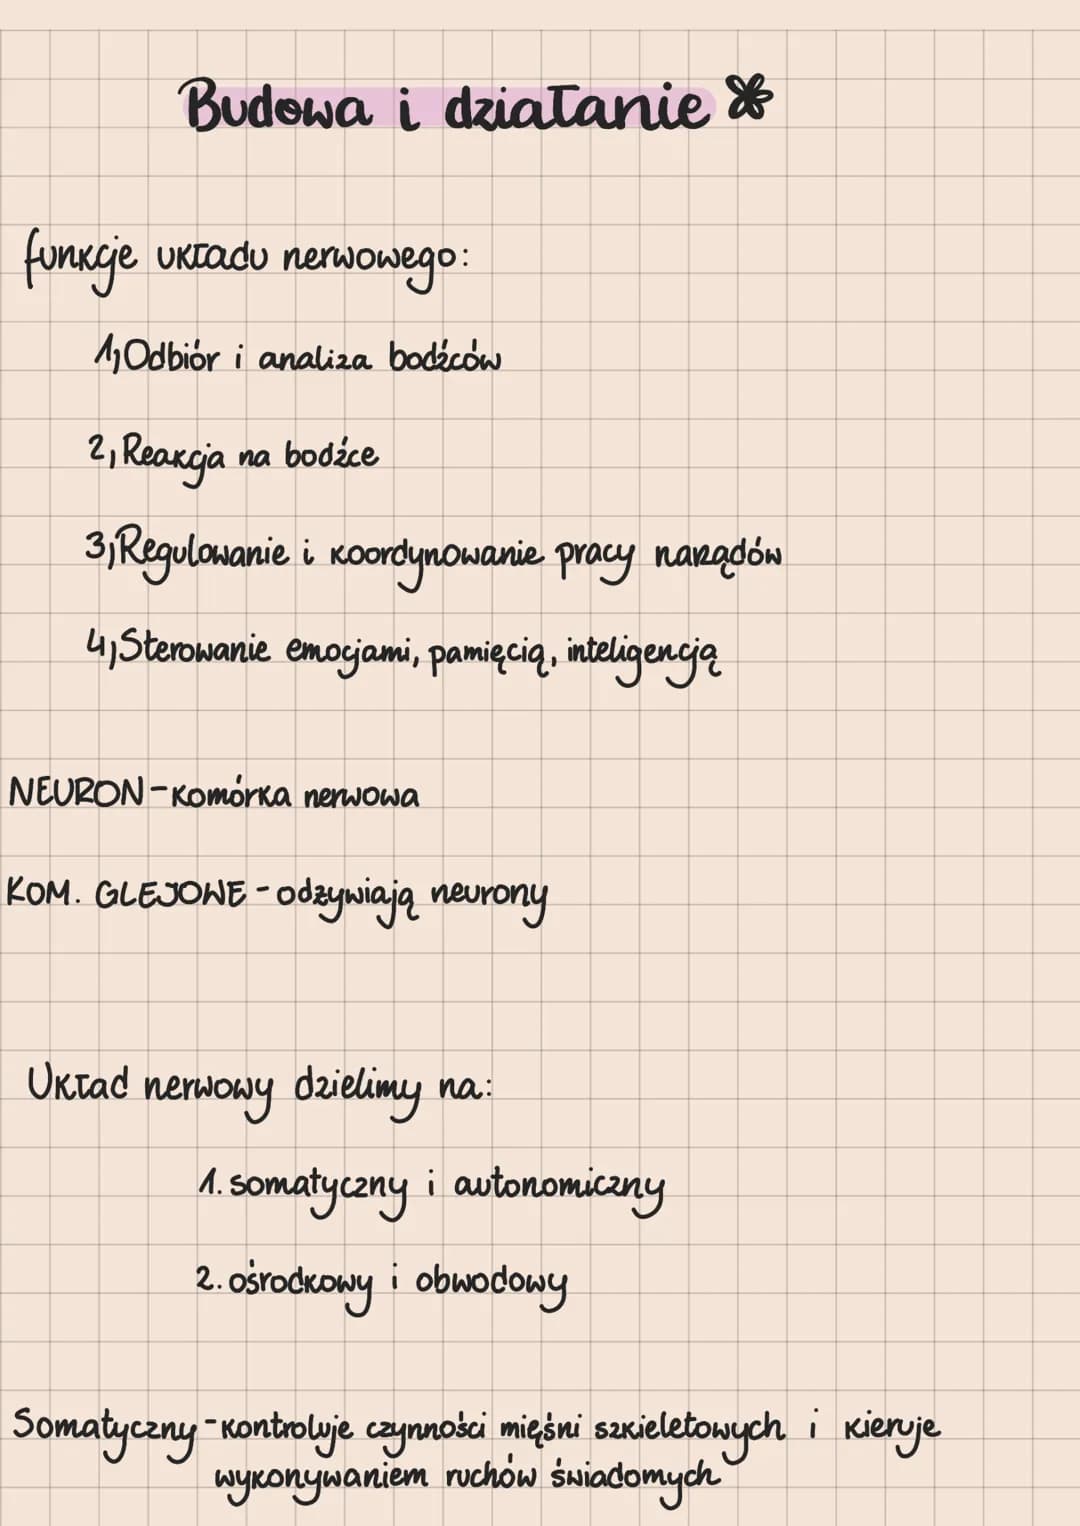 Budowa i działanie
funkcje układu nerwowego:
1) Odbiór i analiza bodźców
2) Reakcja na bodźce
3) Regulowanie i koordynowanie pracy narządów
4) Sterowanie emocjami, pamięcią, inteligencją
NEURON - komórka nerwowa
KOM. GLEJOWE - odżywiają neurony
Układ nerwowy dzielimy na:
1. somatyczny i autonomiczny
2. ośrodkowy i obwodowy
Somatyczny - kontroluje czynności mięśni szkieletowych i kieruje
wykonywaniem ruchów świadomych